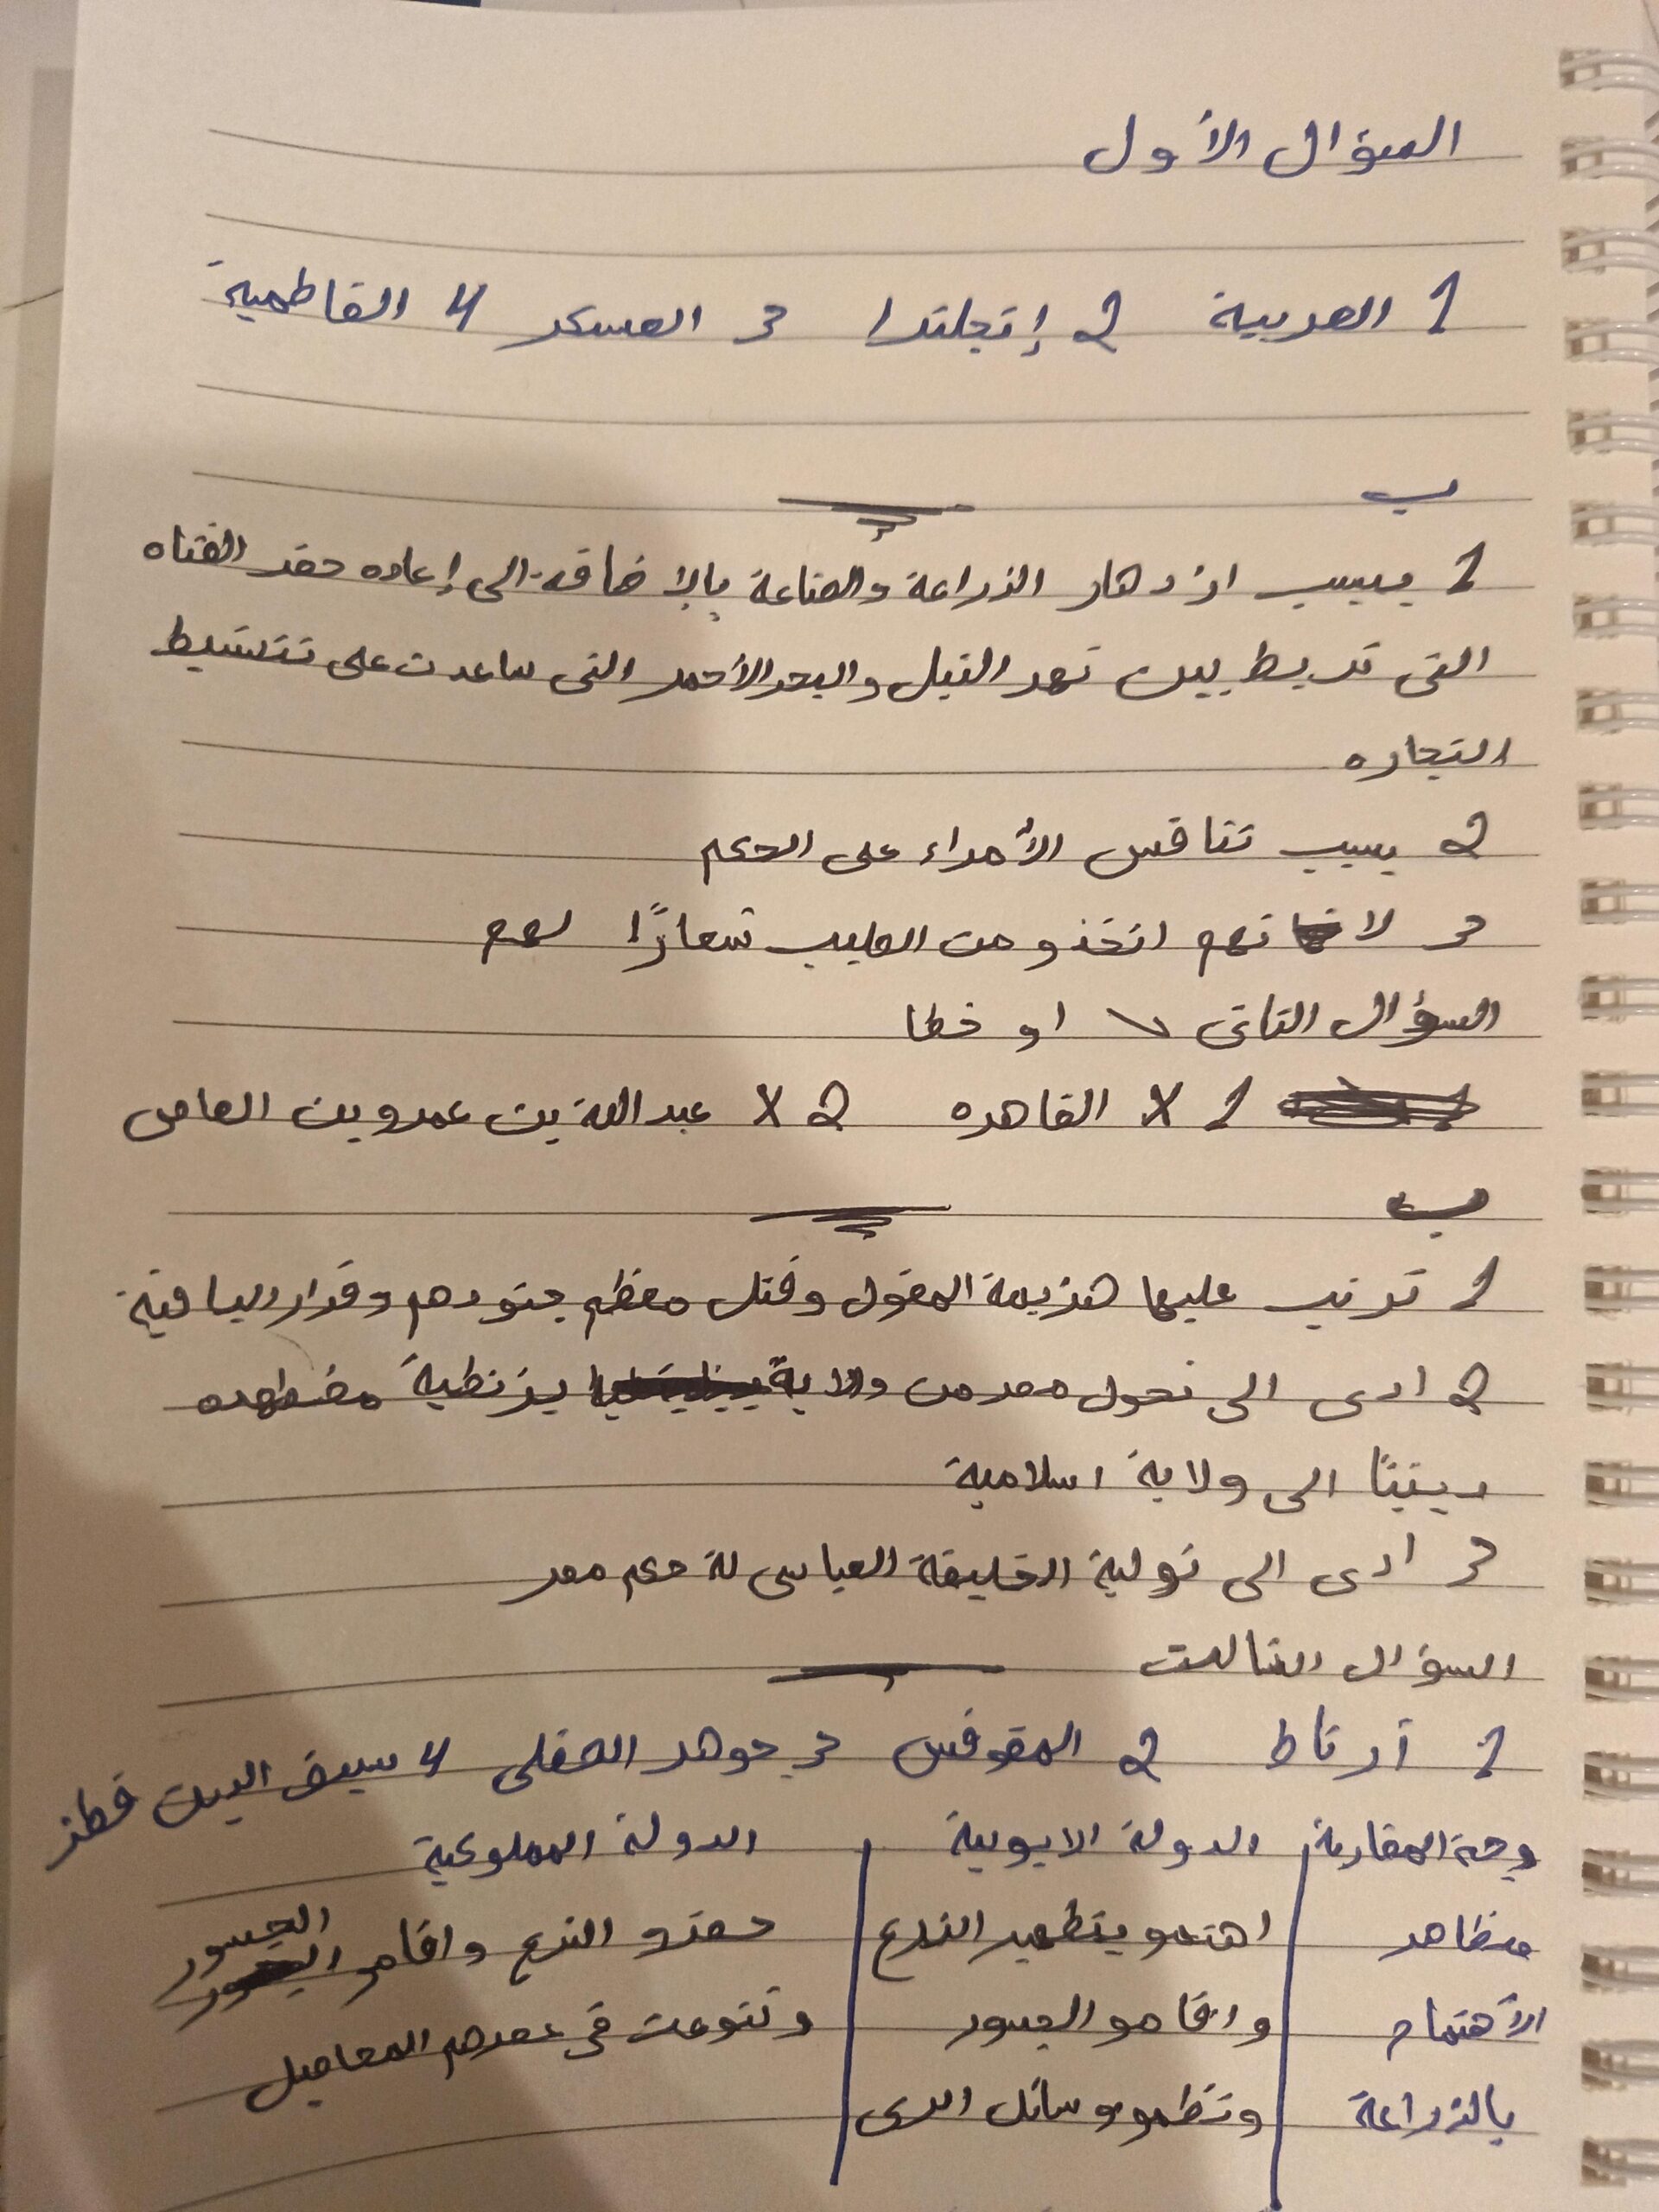 السؤال الأول
1 العربية 2 إنجلترا 3 العسكر 4 الفاطمية
ب
1 بسبب ازدهار الزراعة والصناعة بالإضافة الى إعاده حفر القناه
التى تربط بين نهر النيل والبحر الأحمر التى ساعدت على تنشيط
التجاره
2 بسبب تنافس الأمراء على الحكم
3 لانهم اتخذو من الصليب شعارًا لهم
السؤال الثانى ✓ او خطا
1 X القاهره 2 X عبد الله بن عمرو بن العاص
ب
1 ترتب عليها هزيمة المغول وقتل معظم جنودهم وفرار الباقية
2 ادى الى تحول مصر من ولاية بزنطية مضطهده
دينيًا الى ولاية اسلامية
3 ادى الى تولية الخليفة العباسى لة حكم مصر
السؤال الثالث
1 أرناط 2 المقوقس 3 جوهر الصقلى 4 سيف الدين قطز
وجة المقارنة | الدولة الايوبية | الدولة المملوكية
مظاهر | اهتمو بتطهير الترع | حفرو الترع واقامو الجسور
الأهتمام | واقامو الجسور | وتنوعت فى عصرهم المحاصيل
بالزراعة | ونظمو وسائل الرى